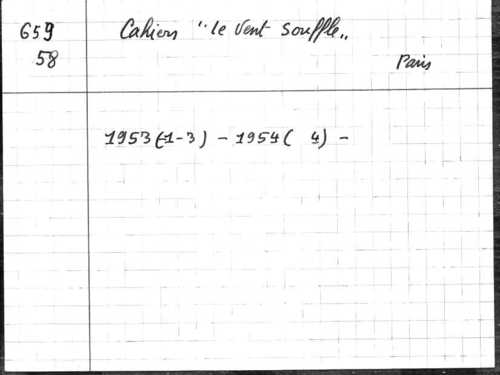 659 Cahiers "le vent souffle"
58 Paris
1953 (1-3) - 1954 ( 4) -